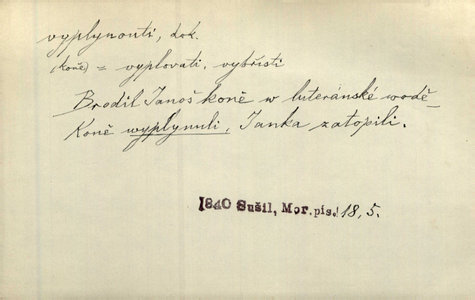 vyplynouti, dok.
(koně) = vyplovati, vybřísti
Brodil Janoš koně w luteránské wodě
Koně wyplynuli, Janka zatopili.
1840 Sušil, Mor. pís. 18, 5.